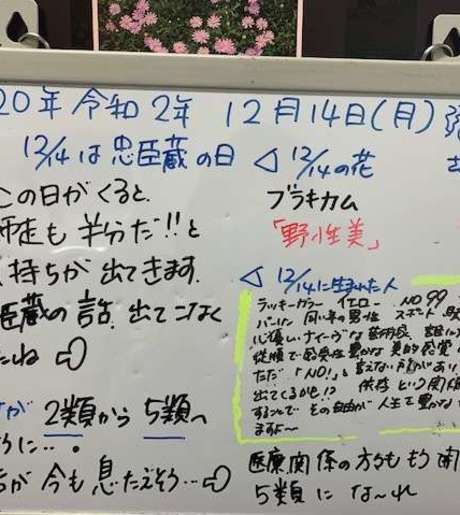 20年 令和2年 12月14日(月)
12/14は忠臣蔵の日
この日がくると、
師走も半分だ!!と
持ちが出てきます
臣蔵の話、出てこなく
たね
が 2類から5類へ
うに…。
が今も息たえそう…
◁ 12/14の花
ブラキカム
「野性美」
◁ 12/14に生まれた人
ラッキーカラー イエロー NO 99
同い年の男性 スポーツ
心優しい ナイーヴな 芸術家
従順で感受性豊かな 美的感覚
ただ「NO!」と言えない所があり
出てくるかも!? 依存という関係
することで その自由が人生で豊かな
ますよ〜
医療関係の方々も もう
5類に な〜れ